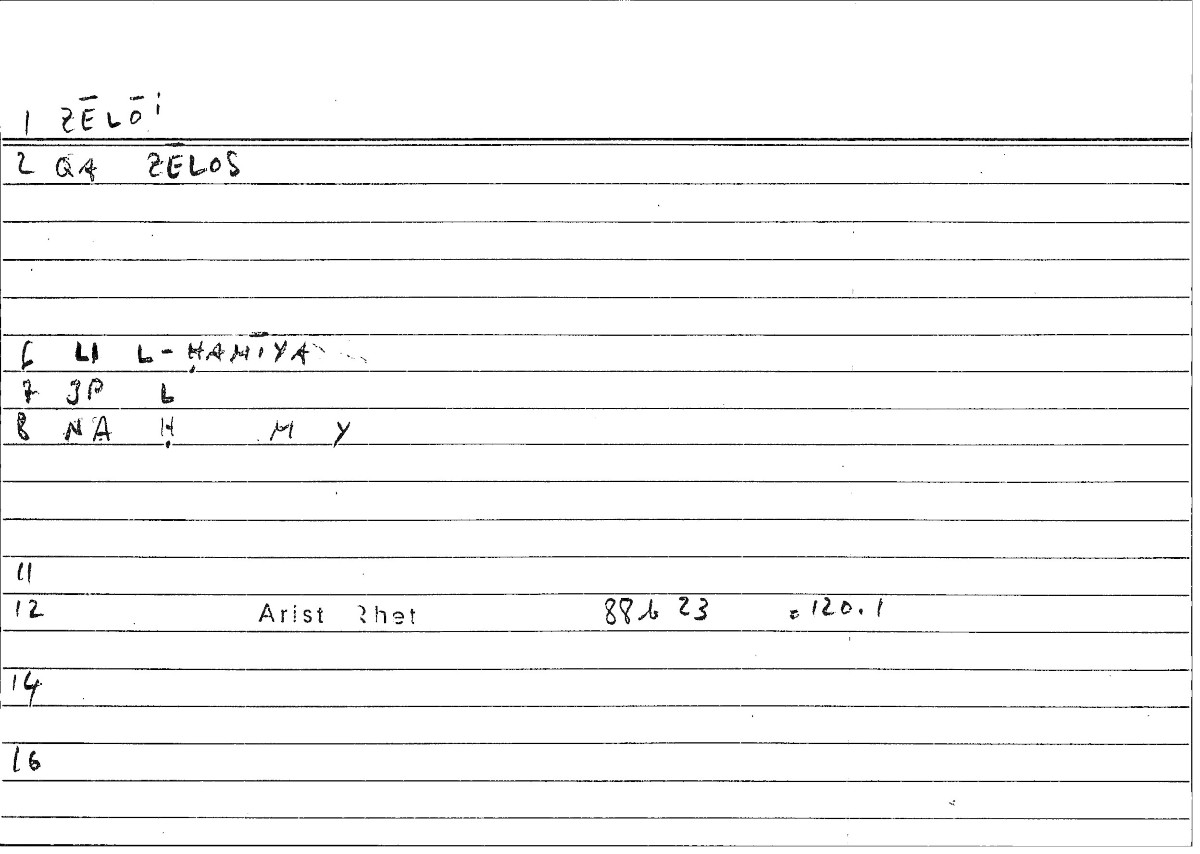 1 ZĒLŌI
2 QA ZĒLOS
6 LI L-ḤAMĪYA
7 JP L
8 NA Ḥ M Y
11
12 Arist Rhet 88b 23 =120.1
14
16